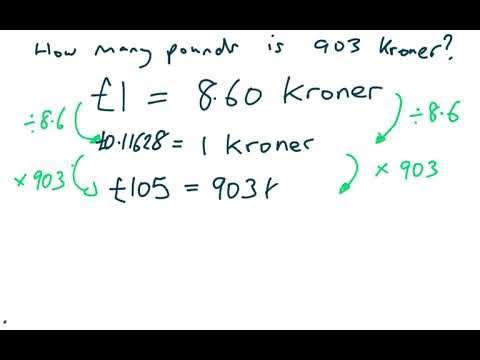 How many pounds is 903 Kroner?
£1 = 8.60 Kroner
÷8.6 ÷8.6
£0.11628 = 1 Kroner
× 903 × 903
£105 = 903k